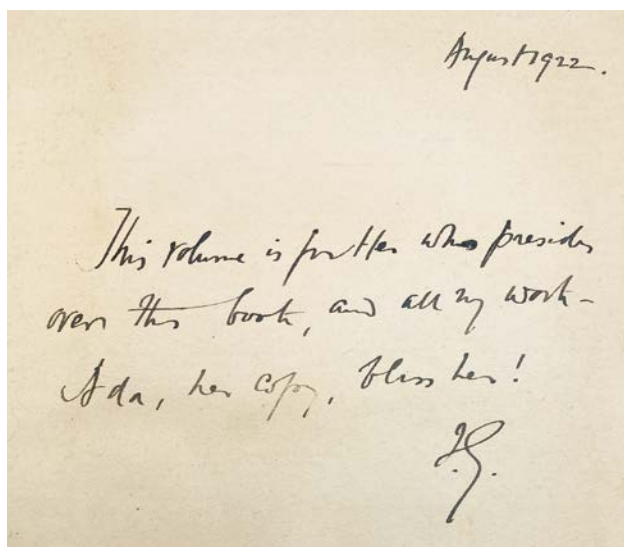 August 1922.
This volume is for Her who presides
over this book, and all my work –
Ada, her copy, bless her!
J.G.